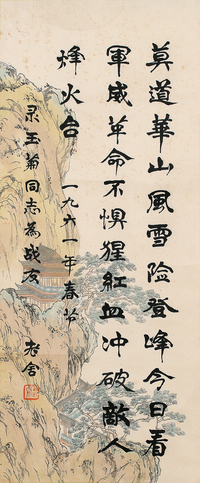 莫道華山風雪险登峰今日看
軍威革命不惧猩紅血冲破敵人
烽火台 一九六一年春节
录王菊同志為战友
老舍